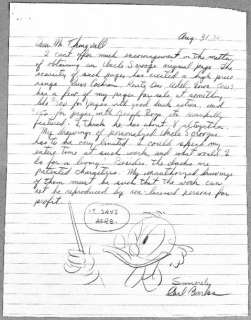 I can't offer much encouragement in the matter
of obtaining an Uncle Scrooge original page. The
scarcity of such pages has created a high price
range. Russ Cochran,
has a few of my pages for sale at something
like for pages with good duck action, and
for pages with
featured. I think he has about 8 altogether.
My drawings of personalized Uncle Scrooges
has to be very limited. I could spend my
entire time at such work and what would I
do for a living? Besides the ducks are
patented characters. My unauthorized drawings
of them must be such that the work can
not be reproduced by non-licensed persons for
profit.
IT SAYS
HERE.
Sincerely
Carl Barks